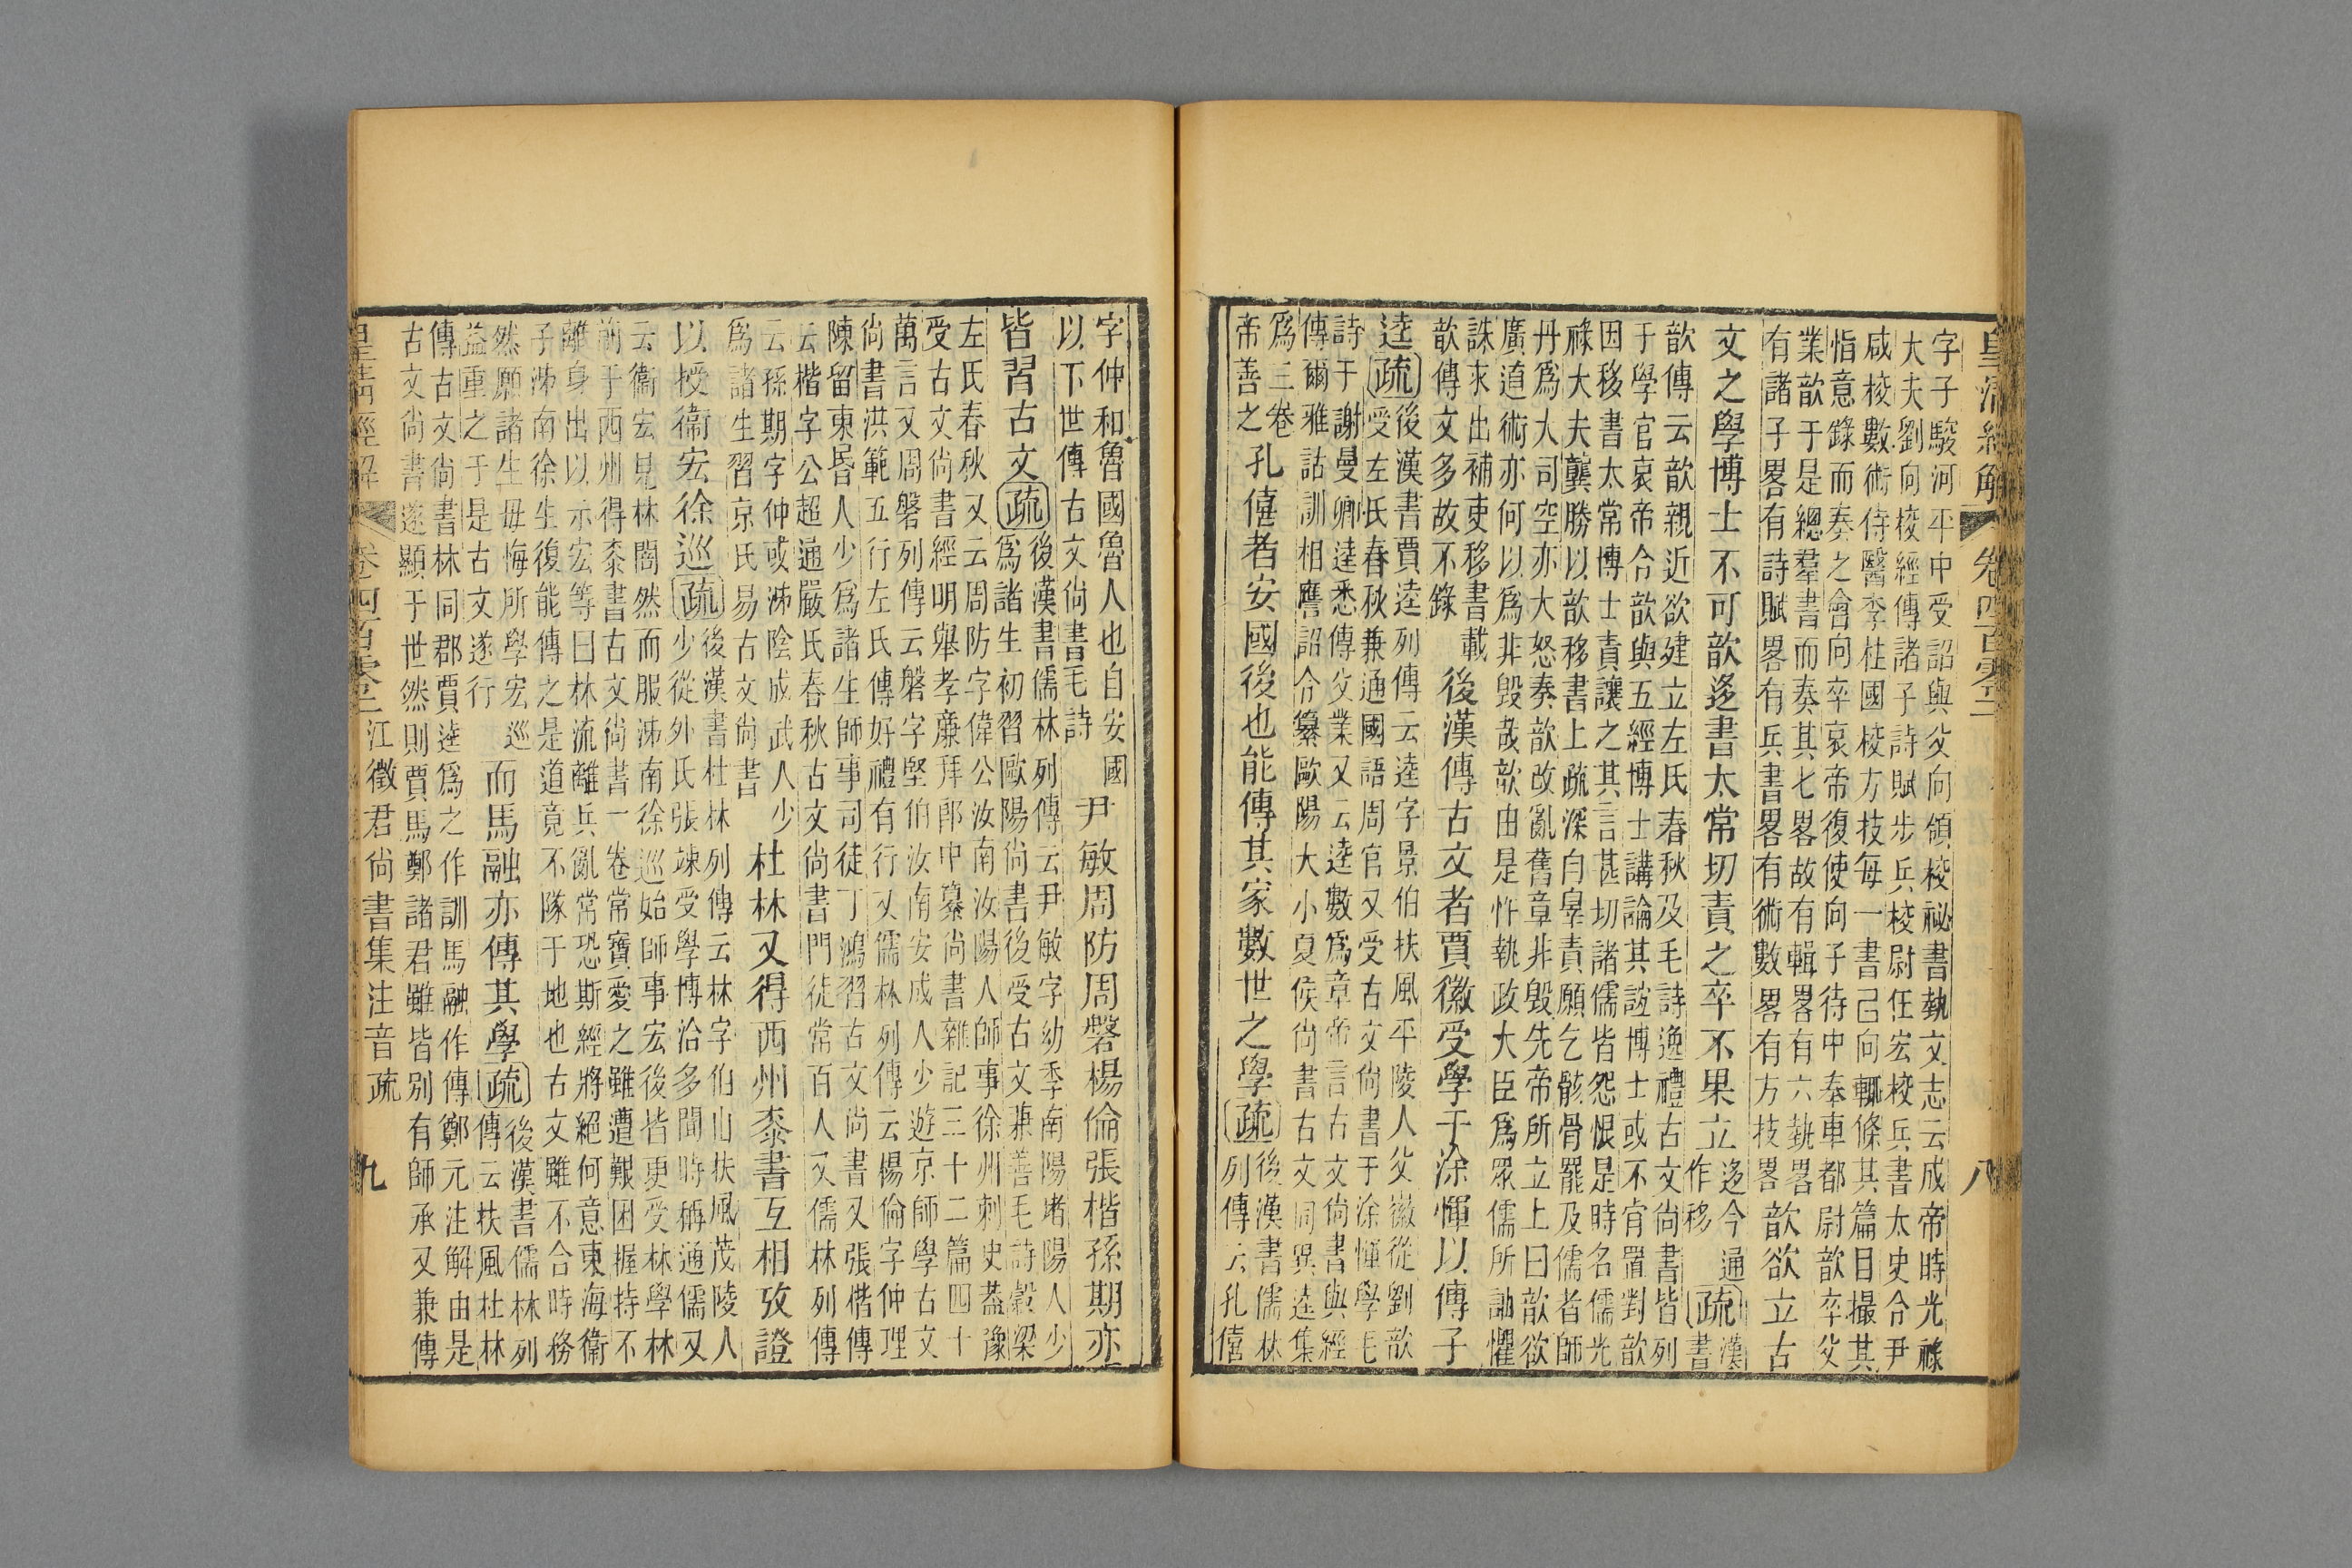 皇清經解 卷四百零二 八
字子駿河平中受詔與父向領校祕書埶文志云成帝時光祿
大夫劉向校經傳諸子詩賦步兵校尉任宏校兵書太史令尹
咸校數術侍醫李柱國校方技每一書已向輒條其篇目撮其
恉意錄而奏之會向卒哀帝復使向子待中奉車都尉歆卒父
業歆于是總羣書而奏其七畧故有輯畧有六埶畧
有諸子畧有詩賦畧有兵書畧有術數畧有方技畧
歆欲立古
文之學博士不可歆迻書太常切責之卒不果立
迻今通
作移
疏
漢
書
歆傳云歆親近欲建立左氏春秋及毛詩逸禮古文尙書皆列
于學官哀帝令歆與五經博士講論其誼博士或不肯置對歆
因移書太常博士責讓之其言甚切諸儒皆怨恨是時名儒光
祿大夫龔勝以歆移書上疏深自辠責願乞骸骨罷及儒者師
丹爲大司空亦大怒奏歆改亂舊章非毁先帝所立上曰歆欲
廣道術亦何以爲非毁哉歆由是忤執政大臣爲眾儒所訕懼
誅求出補吏移書載
歆傳文多故不錄
後漢傳古文者賈徽受學于涂惲以傳子
逵
疏
後漢書賈逵列傳云逵字景伯扶風平陵人父徽從劉歆
受左氏春秋兼通國語周官又受古文尙書于涂惲學毛
詩于謝曼卿逵悉傳父業又云逵數爲章帝言古文尙書與經
傳爾雅詁訓相應詔令纂歐陽大小夏侯尙書古文同異逵集
爲三卷
帝善之
孔僖者安國後也能傳其家數世之學
疏
後漢書儒林
列傳云孔僖
字仲和魯國魯人也自安國
以下世傳古文尙書毛詩
尹敏周防周磐楊倫張楷孫期亦
皆習古文
疏
後漢書儒林列傳云尹敏字幼季南陽堵陽人少
爲諸生初習歐陽尙書後受古文兼善毛詩穀梁
左氏春秋又云周防字偉公汝南汝陽人師事徐州刺史葢豫
受古文尙書經明舉孝廉拜郎中纂尙書雜記三十二篇四十
萬言又周磐列傳云磐字堅伯汝南安成人少遊京師學古文
尙書洪範五行左氏傳好禮有行又儒林列傳云楊倫字仲理
陳留東昏人少爲諸生師事司徒丁鴻習古文尙書又張楷傳
云楷字公超通嚴氏春秋古文尙書門徒常百人又儒林列傳
云孫期字仲或沛陰成武人少
爲諸生習京氏易古文尙書
杜林又得西州桼書互相攷證
以授衞宏徐巡
疏
後漢書杜林列傳云林字伯山扶風茂陵人
少從外氏張竦受學博洽多聞時稱通儒又
云衞宏見林闇然而服沛南徐巡始師事宏後皆更受林學林
前于西州得桼書古文尙書一卷常寶愛之雖遭艱困握持不
離身出以示宏等曰林流離兵亂常恐斯經將絕何意東海衞
子沛南徐生復能傳之是道竟不隊于地也古文雖不合時務
然願諸生毋悔所學宏巡
益重之于是古文遂行
而馬融亦傳其學
疏
後漢書儒林列
傳云扶風杜林
傳古文尙書林同郡賈逵爲之作訓馬融作傳鄭元注解由是
古文尙書遂顯于世然則賈馬鄭諸君雖皆別有師承又兼傳
皇淸經解 卷四百零二 江徵君尙書集注音疏 九